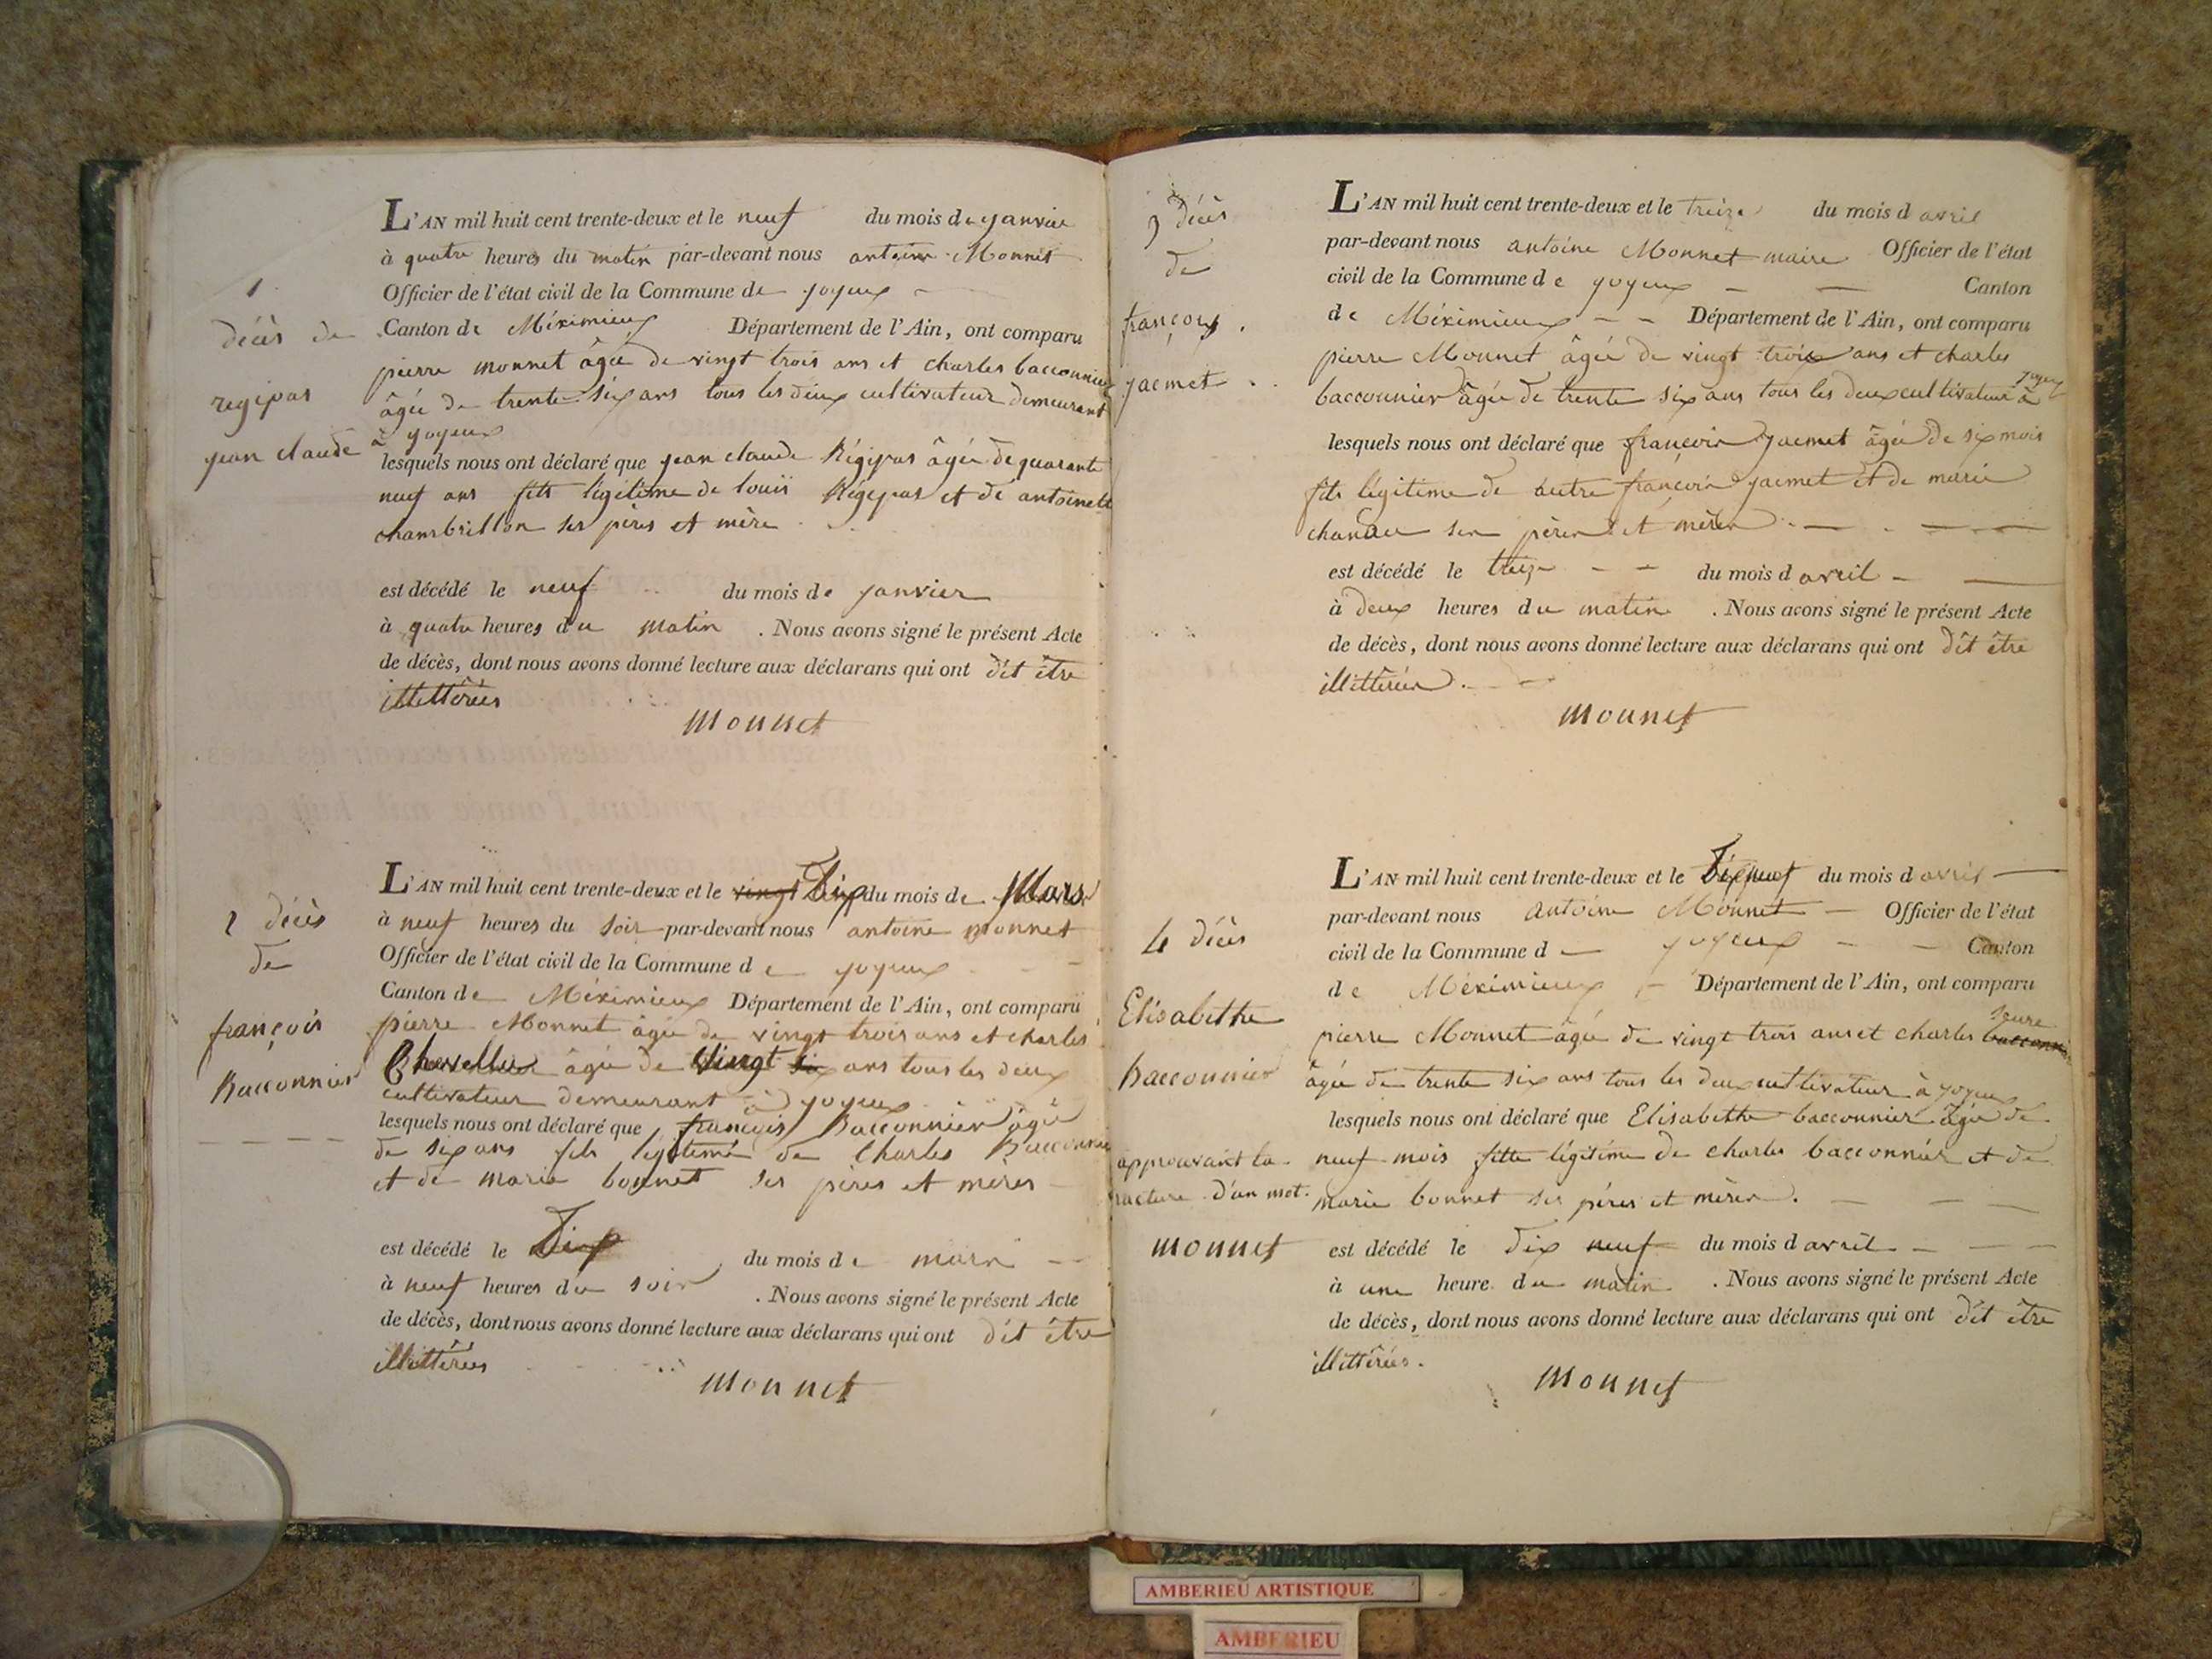 1
décès de
regipas
jean claude
L'AN mil huit cent trente-deux et le neuf du mois de janvier
à quatre heures du matin par-devant nous antoine Monnet
Officier de l'état civil de la Commune de joyeux
Canton de Méximieux Département de l'Ain, ont comparu
pierre monnet âgée de vingt trois ans et charles bacconnier
âgée de trente six ans tous les deux cultivateur demeurant
à joyeux
lesquels nous ont déclaré que jean claude Régipas âgée de quarante
neuf ans fils légitime de louis Régipas et de antoinette
chambrillon ses pères et mère
est décédé le neuf du mois de janvier
à quatre heures du matin . Nous avons signé le présent Acte
de décès, dont nous avons donné lecture aux déclarans qui ont dit être
illettérées
monnet
2 décès
de
françois
Bacconnier
L'AN mil huit cent trente-deux et le vingt Dix du mois de Mars
à neuf heures du soir par-devant nous antoine monnet
Officier de l'état civil de la Commune de joyeux
Canton de Méximieux Département de l'Ain, ont comparu
pierre Monnet âgée de vingt trois ans et charles
âgée de vingt six ans tous les deux
cultivateur demeurant à joyeux
lesquels nous ont déclaré que françois Bacconnier âgé
de six ans fils légitime de Charles Bacconnier
et de marie bonnet ses pères et mères
est décédé le Dix du mois de mars
à neuf heures du soir . Nous avons signé le présent Acte
de décès, dont nous avons donné lecture aux déclarans qui ont dit être
illettérées
monnet
3 décès
de
françois
jacmet
L'AN mil huit cent trente-deux et le treize du mois d avril
par-devant nous antoine Monnet maire Officier de l'état
civil de la Commune de joyeux Canton
de Méximieux Département de l'Ain, ont comparu
pierre Monnet âgée de vingt trois ans et charles
bacconnier âgée de trente six ans tous les deux cultivateur à joyeux
lesquels nous ont déclaré que françois jacmet âgée de six mois
fils légitime de autre françois jacmet et de marie
ses pères et mères
est décédé le treize du mois d avril
à deux heures du matin . Nous avons signé le présent Acte
de décès, dont nous avons donné lecture aux déclarans qui ont dit être
illittérées.
monnet
4 décès
Elisabethe
Bacconnier
approuvant la
rature d'un mot.
monnet
L'AN mil huit cent trente-deux et le Dix neuf du mois d avril
par-devant nous Antoine Monnet Officier de l'état
civil de la Commune de joyeux Canton
de Méximieux Département de l'Ain, ont comparu
pierre Monnet âgée de vingt trois ans et charles
âgée de trente six ans tous les deux cultivateur à joyeux
lesquels nous ont déclaré que Elisabethe bacconnier âgée de
neuf mois fille légitime de charles bacconnier et de
marie bonnet ses pères et mères.
est décédé le Dix neuf du mois d avril
à une heure du matin . Nous avons signé le présent Acte
de décès, dont nous avons donné lecture aux déclarans qui ont dit être
illittérées.
monnet
AMBERIEU ARTISTIQUE
AMBERIEU